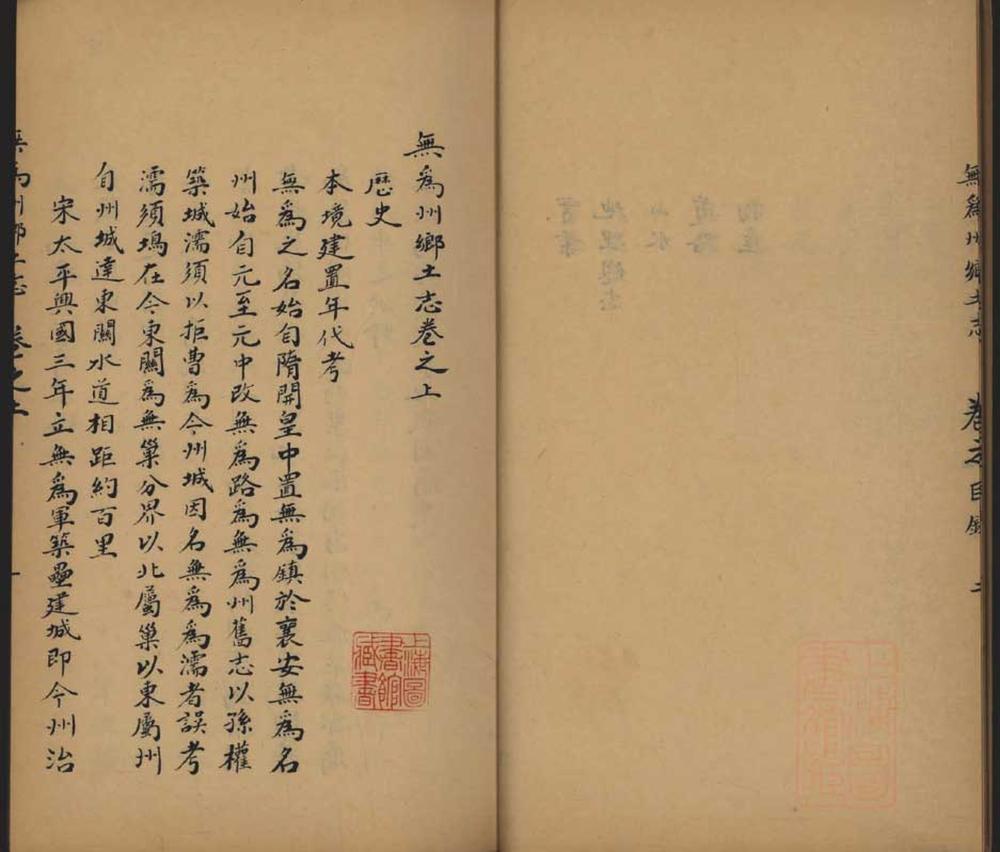 無爲州鄉土志 卷之目錄 二
無爲州鄉土志卷之上
歷史
本境建置年代考
無爲之名始自隋開皇中置無爲鎮於襄安無爲名
州始自元至元中改無爲路爲無爲州舊志以孫權
築城濡須以拒曹爲今州城因名無爲爲濡者誤考
濡須塢在今東關爲無巢分界以北屬巢以東屬州
自州城達東關水道相距約百里
宋太平興國三年立無爲軍築壘建城即今州治
無爲州鄉土志 卷之上 一
上海圖書館藏書